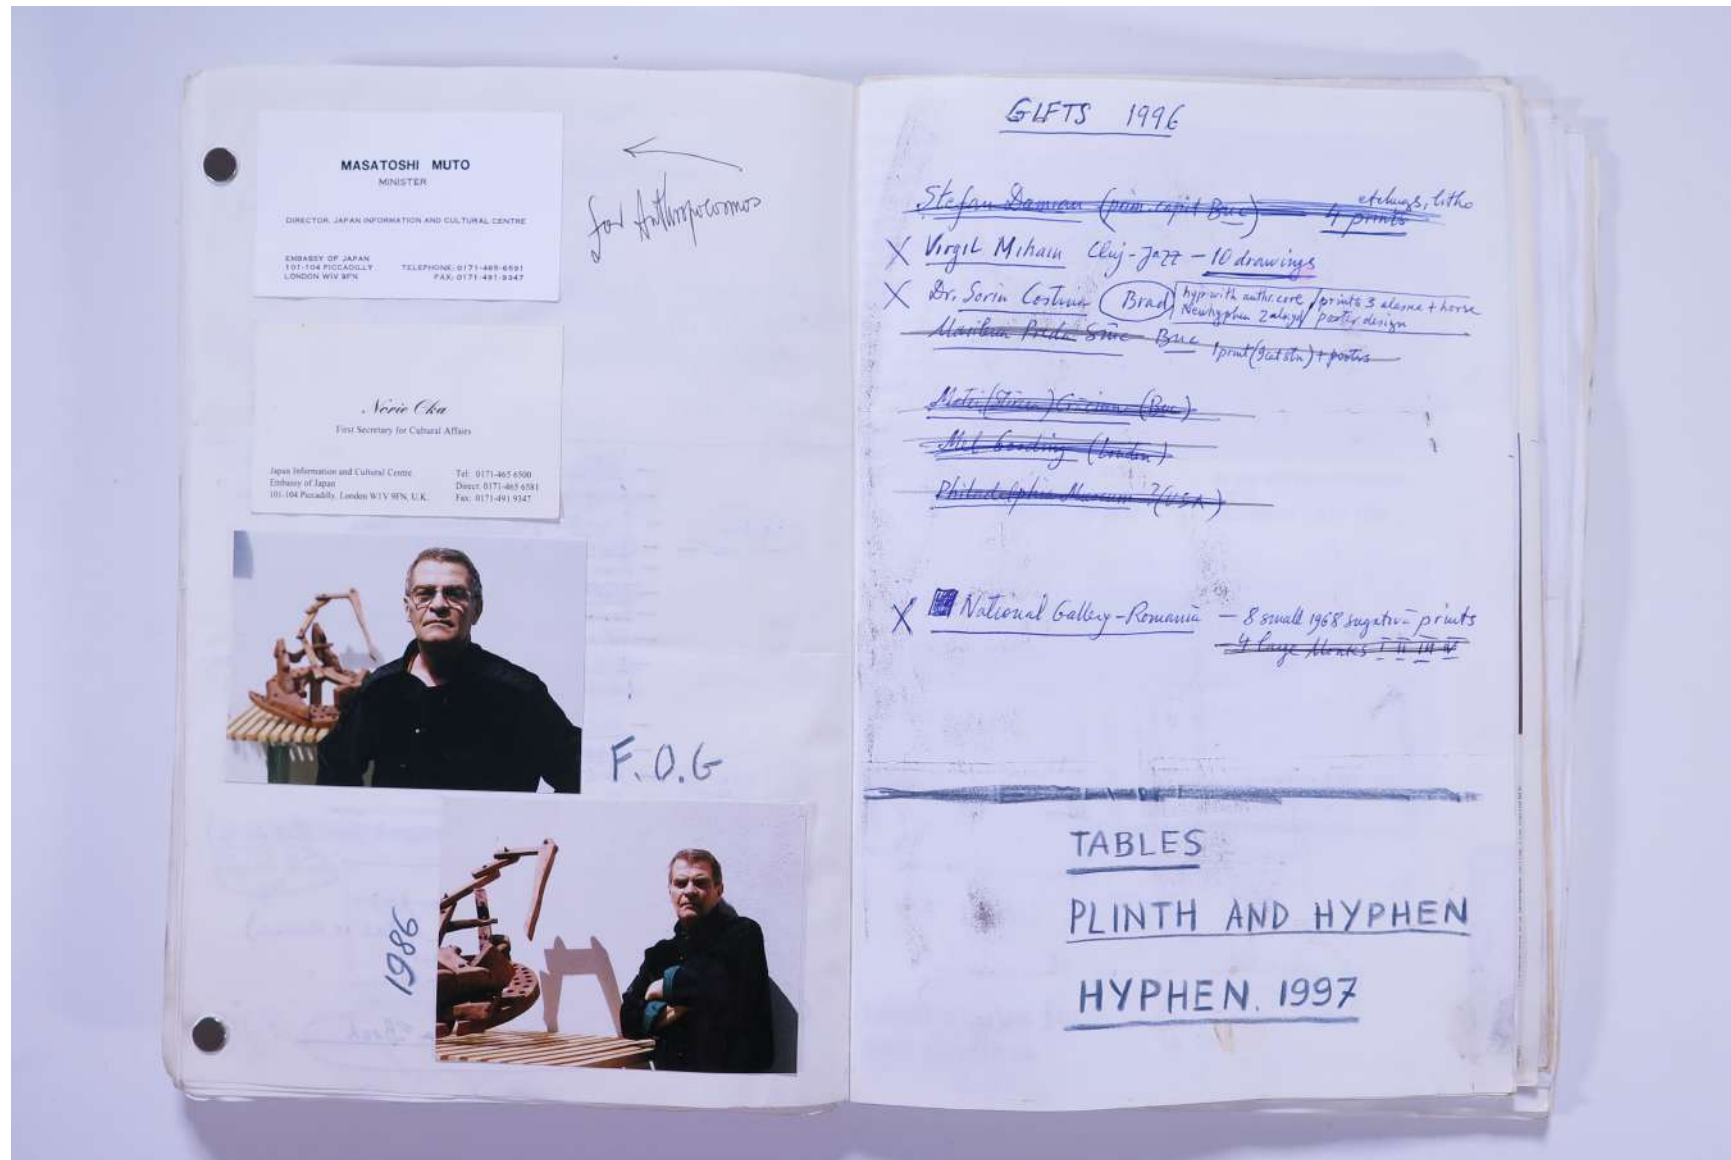 MASATOSHI MUTO
MINISTER
DIRECTOR, JAPAN INFORMATION AND CULTURAL CENTRE
EMBASSY OF JAPAN
101-104 PICCADILLY
LONDON W1V 9FN
TELEPHONE: 0171-465-6591
FAX: 0171-491-9347
for Anthropocosmos
Norie Oka
First Secretary for Cultural Affairs
Japan Information and Cultural Centre
Embassy of Japan
101-104 Piccadilly, London W1V 9FN, U.K.
Tel: 0171-465 6500
Direct: 0171-465 6581
Fax: 0171-491 9347
F.O.G
1986
GIFTS 1996
Stefan Damian Buc etchings, litho
4 prints
X Virgil Mihaiu Cluj-Jazz - 10 drawings
X Dr. Sorin Costina Brad hyp with anthr. core prints 3 + horse
poster design
Preda Buc 1 print
(Buc)
Mel Gooding (London)
Philadelphia Museum ? (USA)
X National Gallery - Romania - 8 small 1968 prints
4 large Monks I II III IV
TABLES
PLINTH AND HYPHEN
HYPHEN. 1997